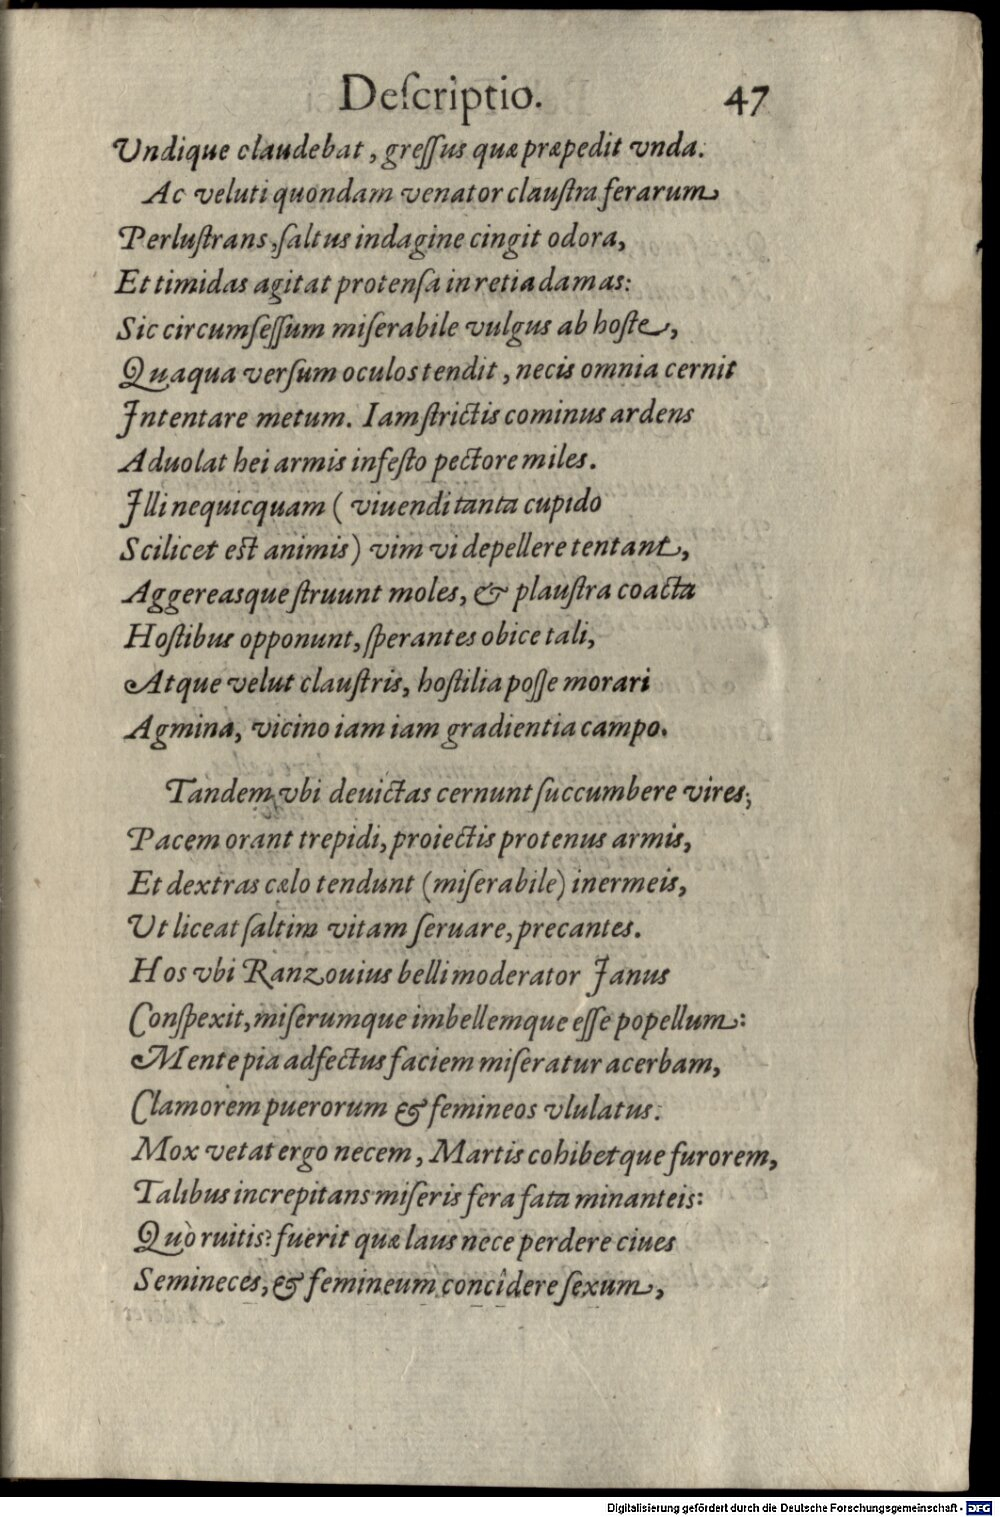 Deſcriptio. 47
Vndique claudebat, greſſus quæ præpedit vnda.
Ac veluti quondam venator clauſtra ferarum
Perluſtrans, ſaltus indagine cingit odora,
Et timidas agitat protenſa in retia damas:
Sic circumſeſſum miſerabile vulgus ab hoſte,
Quaqua verſum oculos tendit, necis omnia cernit
Intentare metum. Iam ſtrictis cominus ardens
Aduolat hei armis infeſto pectore miles.
Illi nequicquam (viuendi tanta cupido
Scilicet eſt animis) vim vi depellere tentant,
Aggereasque ſtruunt moles, & plauſtra coacta
Hoſtibus opponunt, ſperantes obice tali,
Atque velut clauſtris, hoſtilia poſſe morari
Agmina, vicino iam iam gradientia campo.
Tandem vbi deuictas cernunt ſuccumbere vires;
Pacem orant trepidi, proiectis protenus armis,
Et dextras cælo tendunt (miſerabile) inermeis,
Vt liceat ſaltim vitam ſeruare, precantes.
Hos vbi Ranzouius belli moderator Janus
Conſpexit, miſerumque imbellemque eſſe popellum:
Mente pia adfectus faciem miſeratur acerbam,
Clamorem puerorum & femineos vlulatus.
Mox vetat ergo necem, Martis cohibetque furorem,
Talibus increpitans miſeris fera fata minanteis:
Quò ruitis? fuerit quæ laus nece perdere ciues
Semineces, & femineum concîdere ſexum,
Digitalisierung gefördert durch die Deutsche Forschungsgemeinschaft - DFG